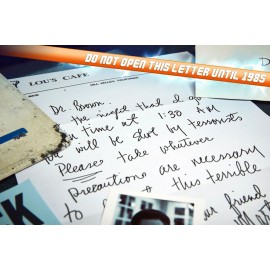 DO NOT OPEN THIS LETTER UNTIL 1985
LOU'S CAFE
Dr. Brown,
the night that I go
in time at 1:30 AM
will be shot by terrorists
Please take whatever
precautions are necessary
to this terrible
friend